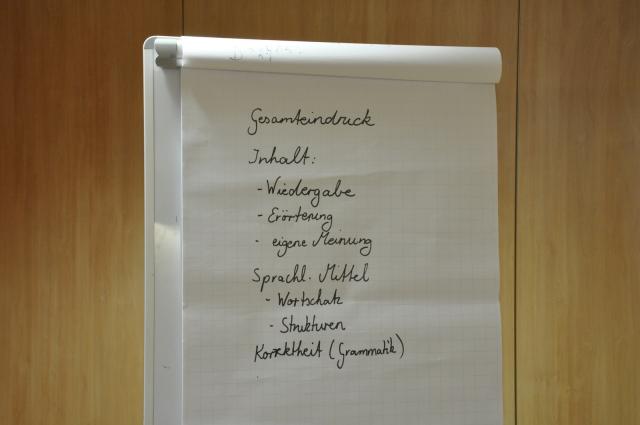 Gesamteindruck
Inhalt:
- Wiedergabe
- Erörterung
- eigene Meinung
Sprachl. Mittel
- Wortschatz
- Strukturen
Korrektheit (Grammatik)